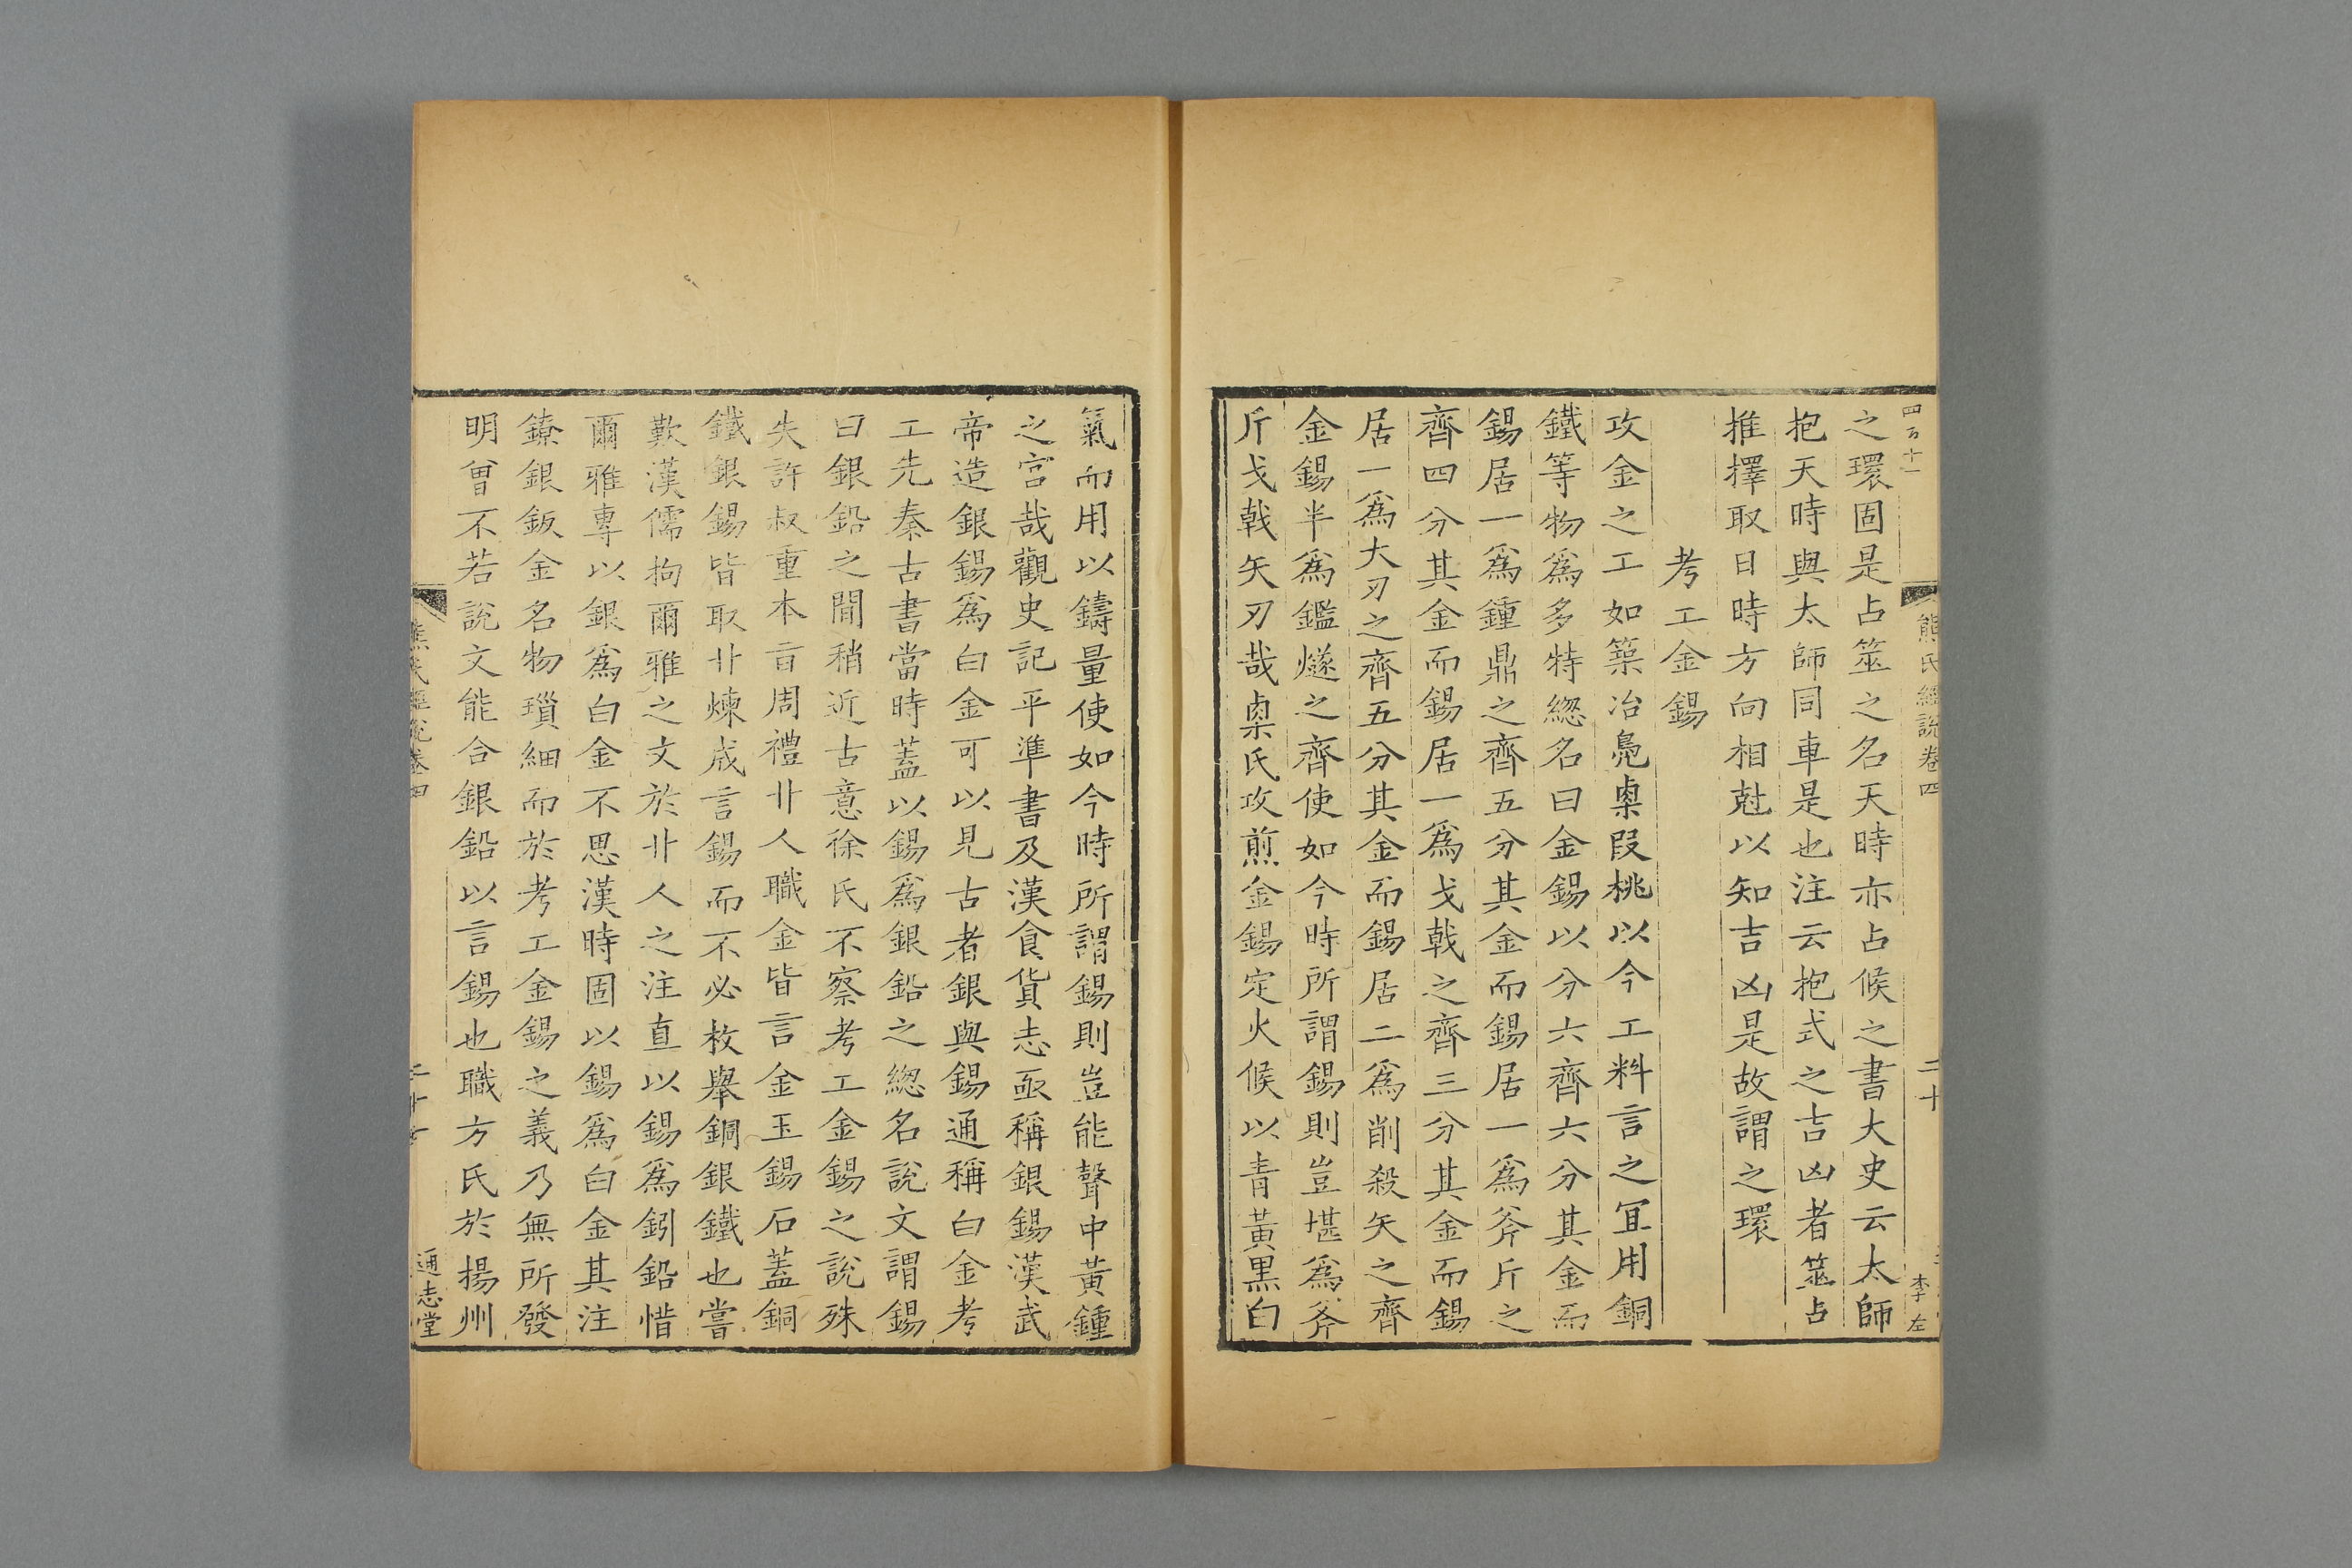 四百十一
熊氏經說卷四
二十
李左
之環固是占筮之名天時亦占候之書大史云太師
抱天時與太師同車是也注云抱式之吉凶者筮占
推擇取日時方向相尅以知吉凶是故謂之環
考工金錫
攻金之工如築冶鳧㮚段桃以今工料言之宜用銅
鐵等物爲多特緫名曰金錫以分六齊六分其金而
錫居一爲鍾鼎之齊五分其金而錫居一爲斧斤之
齊四分其金而錫居一爲戈戟之齊三分其金而錫
居一爲大刃之齊五分其金而錫居二爲削殺矢之齊
金錫半爲鑑燧之齊使如今時所謂錫則豈堪爲斧
斤戈戟矢刃哉㮚氏攻煎金錫定火候以青黃黑白
氣而用以鑄量使如今時所謂錫則豈能聲中黃鍾
之宮哉觀史記平準書及漢食貨志亟稱銀錫漢武
帝造銀錫爲白金可以見古者銀與錫通稱白金考
工先秦古書當時蓋以錫爲銀鉛之緫名說文謂錫
曰銀鉛之間稍近古意徐氏不察考工金錫之說殊
失許叔重本旨周禮卝人職金皆言金玉錫石蓋銅
鐵銀錫皆取卝煉成言錫而不必枚舉銅銀鐵也嘗
歎漢儒拘爾雅之文於卝人之注直以錫爲鈏鉛惜
爾雅專以銀爲白金不思漢時固以錫爲白金其注
鐐銀鈑金名物瑣細而於考工金錫之義乃無所發
明曾不若說文能合銀鉛以言錫也職方氏於揚州
熊氏經說卷四
通志堂